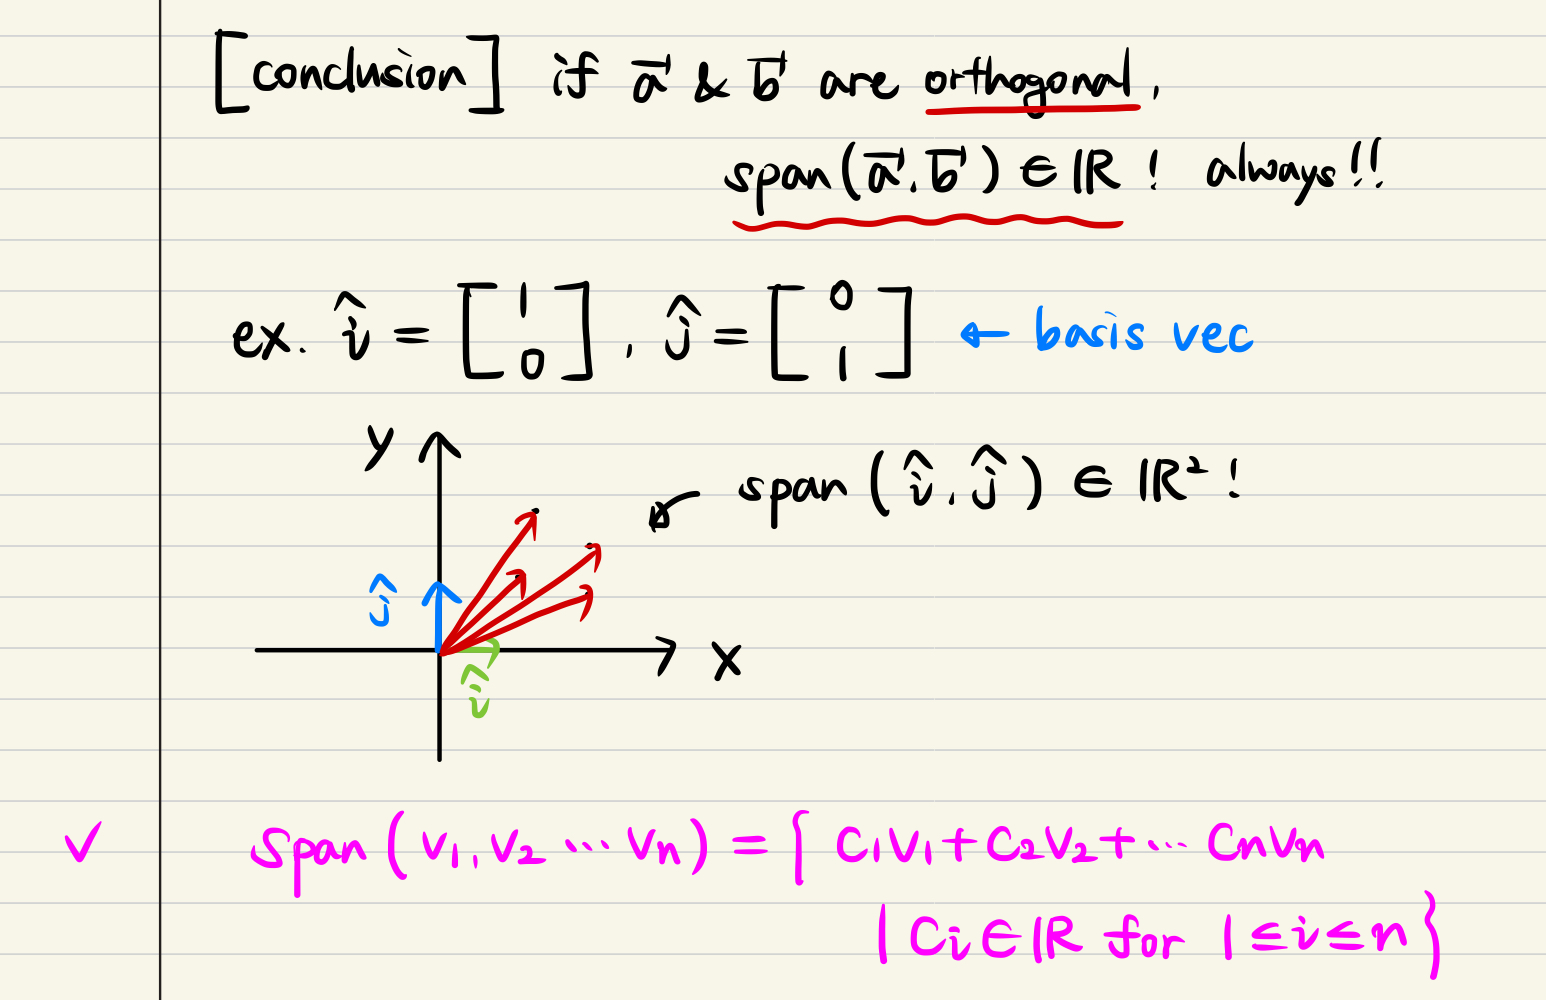 [conclusion] if a⃗ & b⃗ are orthogonal,
span(a⃗, b⃗) ∈ ℝ ! always!!
ex. î = [1 0], ĵ = [0 1] ← basis vec
y
span (î, ĵ) ∈ ℝ² !
ĵ
x
î
✓ span (v₁, v₂ ⋯ vₙ) = { c₁v₁+c₂v₂+⋯ cₙvₙ
| cᵢ ∈ ℝ for 1≤i≤n }